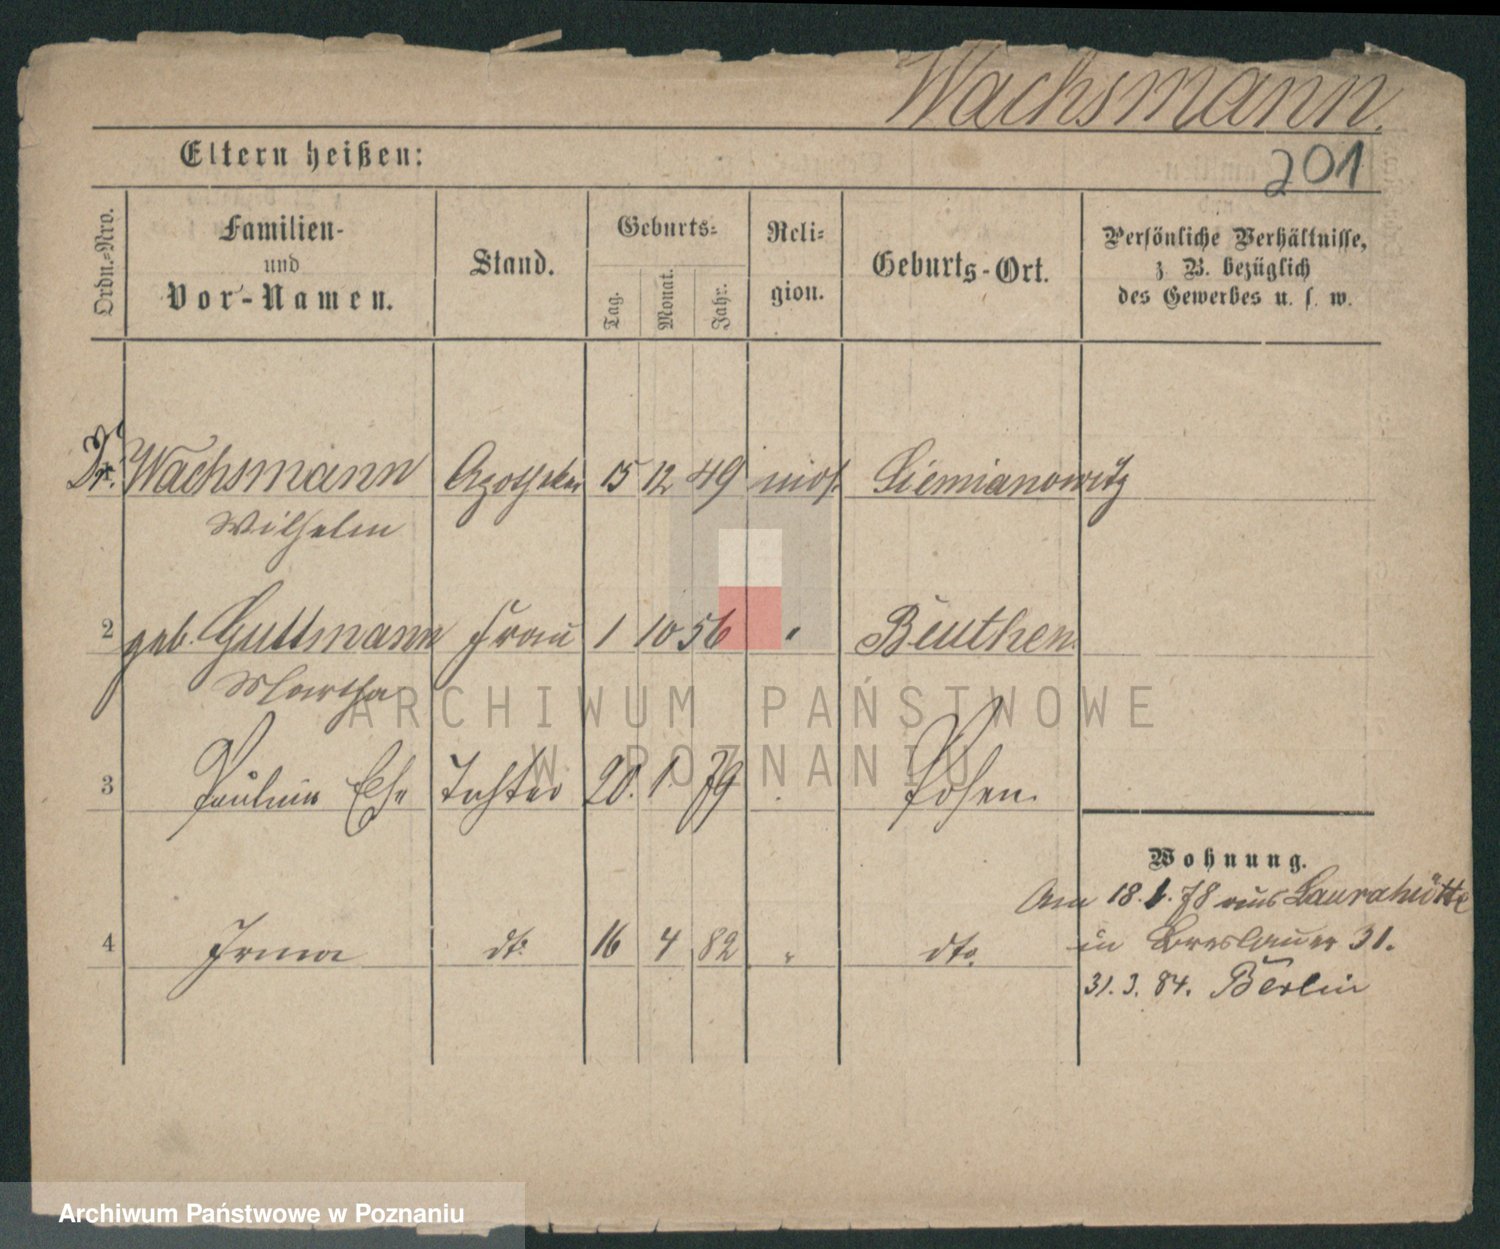 Wachsmann.
201
Eltern heißen:
Ordn.-Nro.
Familien-
und
Vor-Namen.
Stand.
Geburts-
Tag. Monat. Jahr.
Reli-
gion.
Geburts-Ort.
Persönliche Verhältnisse,
z B. bezüglich
des Gewerbes u. s w.
Dr. Wachsmann Apotheker 15 12 49 mos. Siemianowitz
Wilhelm
2 geb. Guttmann Frau 1 10 56 " Beuthen.
Martha
3 Tochter 20. 1. 79 Posen.
4 Irma dto 16 4 82 " dto.
Wohnung.
Am 18. 1. 78 aus Laurahütte
in Breslauer 31.
31. 3. 84. Berlin
ARCHIWUM PAŃSTWOWE
W POZNANIU
Archiwum Państwowe w Poznaniu